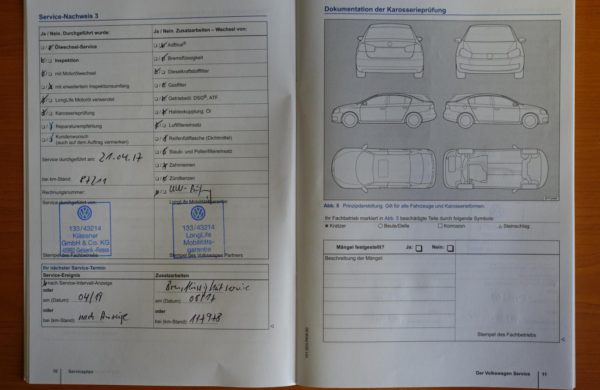 Service-Nachweis 3
Ja / Nein. Durchgeführt wurde:
Ölwechsel-Service
Inspektion
mit Motorölwechsel
mit erweitertem Inspektionsumfang
LongLife Motoröl verwendet
Karosserieprüfung
Reparaturempfehlung
Kundenwunsch
(auch auf dem Auftrag vermerken)
Service durchgeführt am: 21.04.17
bei km-Stand: 87211
Rechnungsnummer:
Service durchgeführt von:
133/43214
Küssner
GmbH & Co. KG
Stempel des Fachbetriebs
Ja / Nein. Zusatzarbeiten – Wechsel von:
AdBlue®
Bremsflüssigkeit
Dieselkraftstofffilter
Gasfilter
Getriebeöl: DSG®, ATF
Haldexkupplung, Öl
Luftfiltereinsatz
Reifenfüllflasche (Dichtmittel)
Staub- und Pollenfiltereinsatz
Zahnriemen
Zündkerzen
LongLife Mobilitätsgarantie
133/43214
LongLife
Mobilitäts-
garantie
Stempel des Volkswagen Partners
Ihr nächster Service-Termin:
Service-Ereignis
nach Service-Intervall-Anzeige
oder
am (Datum): 04/19
oder
bei (km-Stand): nach Anzeige
Zusatzarbeiten
Bremsflüssigkeit service
am (Datum): 08/17
oder
bei (km-Stand): 117978
10 Serviceplan
Dokumentation der Karosserieprüfung
Abb. 5 Prinzipdarstellung. Gilt für alle Fahrzeuge und Karosserieformen.
Ihr Fachbetrieb markiert in Abb. 5 beschädigte Teile durch folgende Symbole:
Kratzer Beule/Delle Korrosion Steinschlag
Mängel festgestellt? Ja: Nein:
Beschreibung der Mängel:
Stempel des Fachbetriebs
Der Volkswagen Service 11